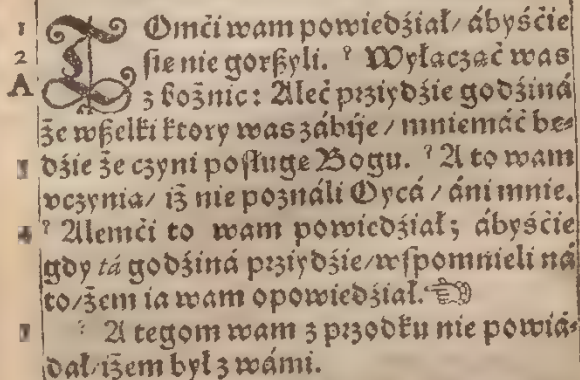 1 TOmći wam powiedźiał/ ábyśćie
2 sie nie gorßyli. ² Wyłaczáć was
A z bożnic: Aleć prziydźie godźiná
że wßelki ktory was zábije / mniemáć be⸗
dźie że czyni posługe Bogu. ³ A to wam
vczynia/ iż nie poználi Oycá / áni mnie.
⁴ Alemći to wam powiedźiał; ábyśćie
gdy tá godźiná prziydźie/ wspomnieli ná
to/ żem ia wam opowiedźiał.☜
A tegom wam z przodku nie powiá⸗
dał/ iżem był z wámi.